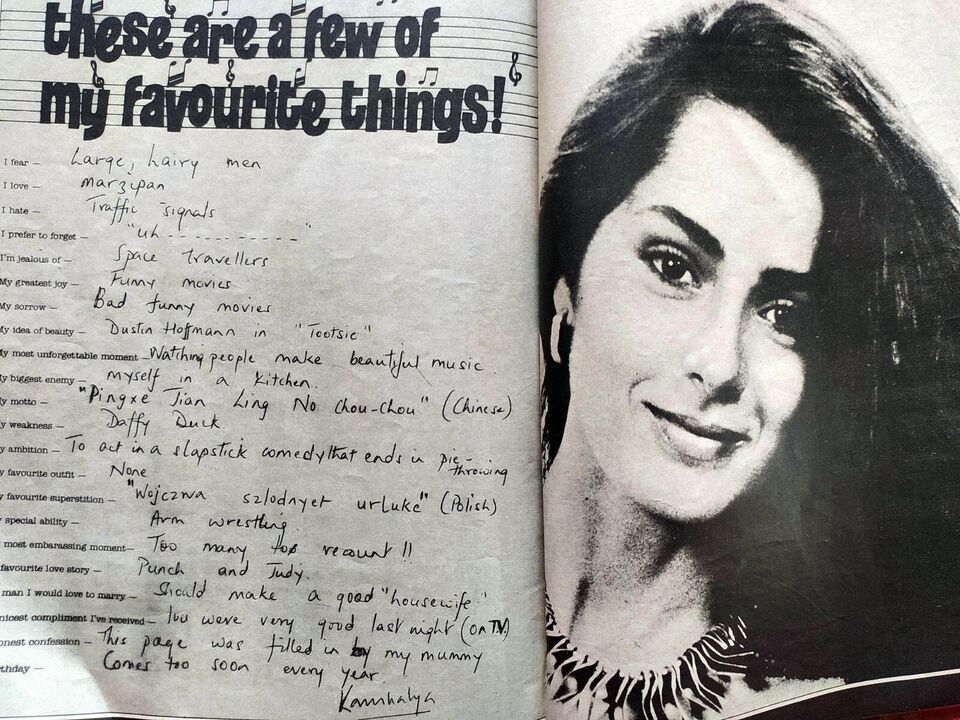 these are a few of
my favourite things!
I fear — Large, hairy men
I love — marzipan
I hate — Traffic signals
I prefer to forget — "uh - - - - - - - - - - - "
I'm jealous of — Space travellers
My greatest joy — Funny movies
My sorrow — Bad funny movies
My idea of beauty — Dustin Hoffmann in "Tootsie"
My most unforgettable moment — Watching people make beautiful music.
My biggest enemy — myself in a kitchen.
My motto — "Pingxe Tian Ling No Chou-Chou" (Chinese)
My weakness — Daffy Duck
y ambition — To act in a slapstick comedy that ends in pie-
throwing
y favourite outfit — None
y favourite superstition — "Wojczwa szlodnyet urluke" (Polish)
special ability — Arm wrestling.
most embarassing moment — Too many to recount !!
favourite love story — Punch and Judy.
man I would love to marry — Should make a good "housewife."
nicest compliment I've received — You were very good last night (on T.V.)
onest confession — This page was filled in by my mummy
thday — Comes too soon every year.